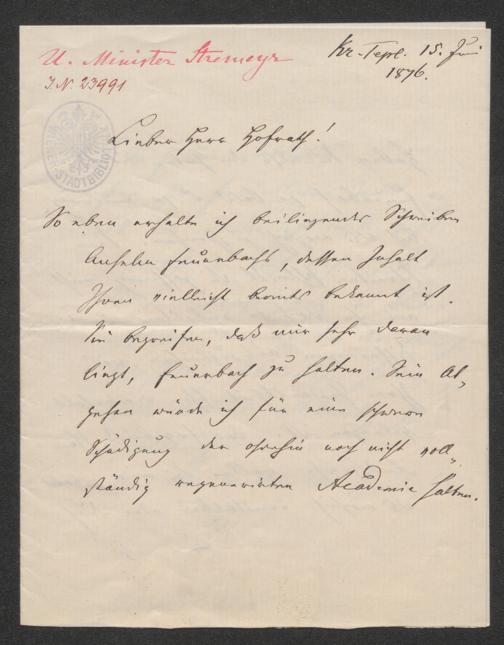 U. Minister Stremayr
I.N. 23991
Kr-Tepl. 15. Juni
1876.
STADTBIBLIO
Lieber Herr Hofrath!
So eben erhalte ich beiliegendes Schreiben
Anselm Feuerbachs, dessen Inhalt
Ihnen vielleicht bereits bekannt ist.
Sie begreifen, daß mir sehr daran
liegt, Feuerbach zu halten. Sein Ab-
gehen würde ich für eine schwere
Schädigung der ohnehin noch nicht voll-
ständig regenerirten Academie halten.